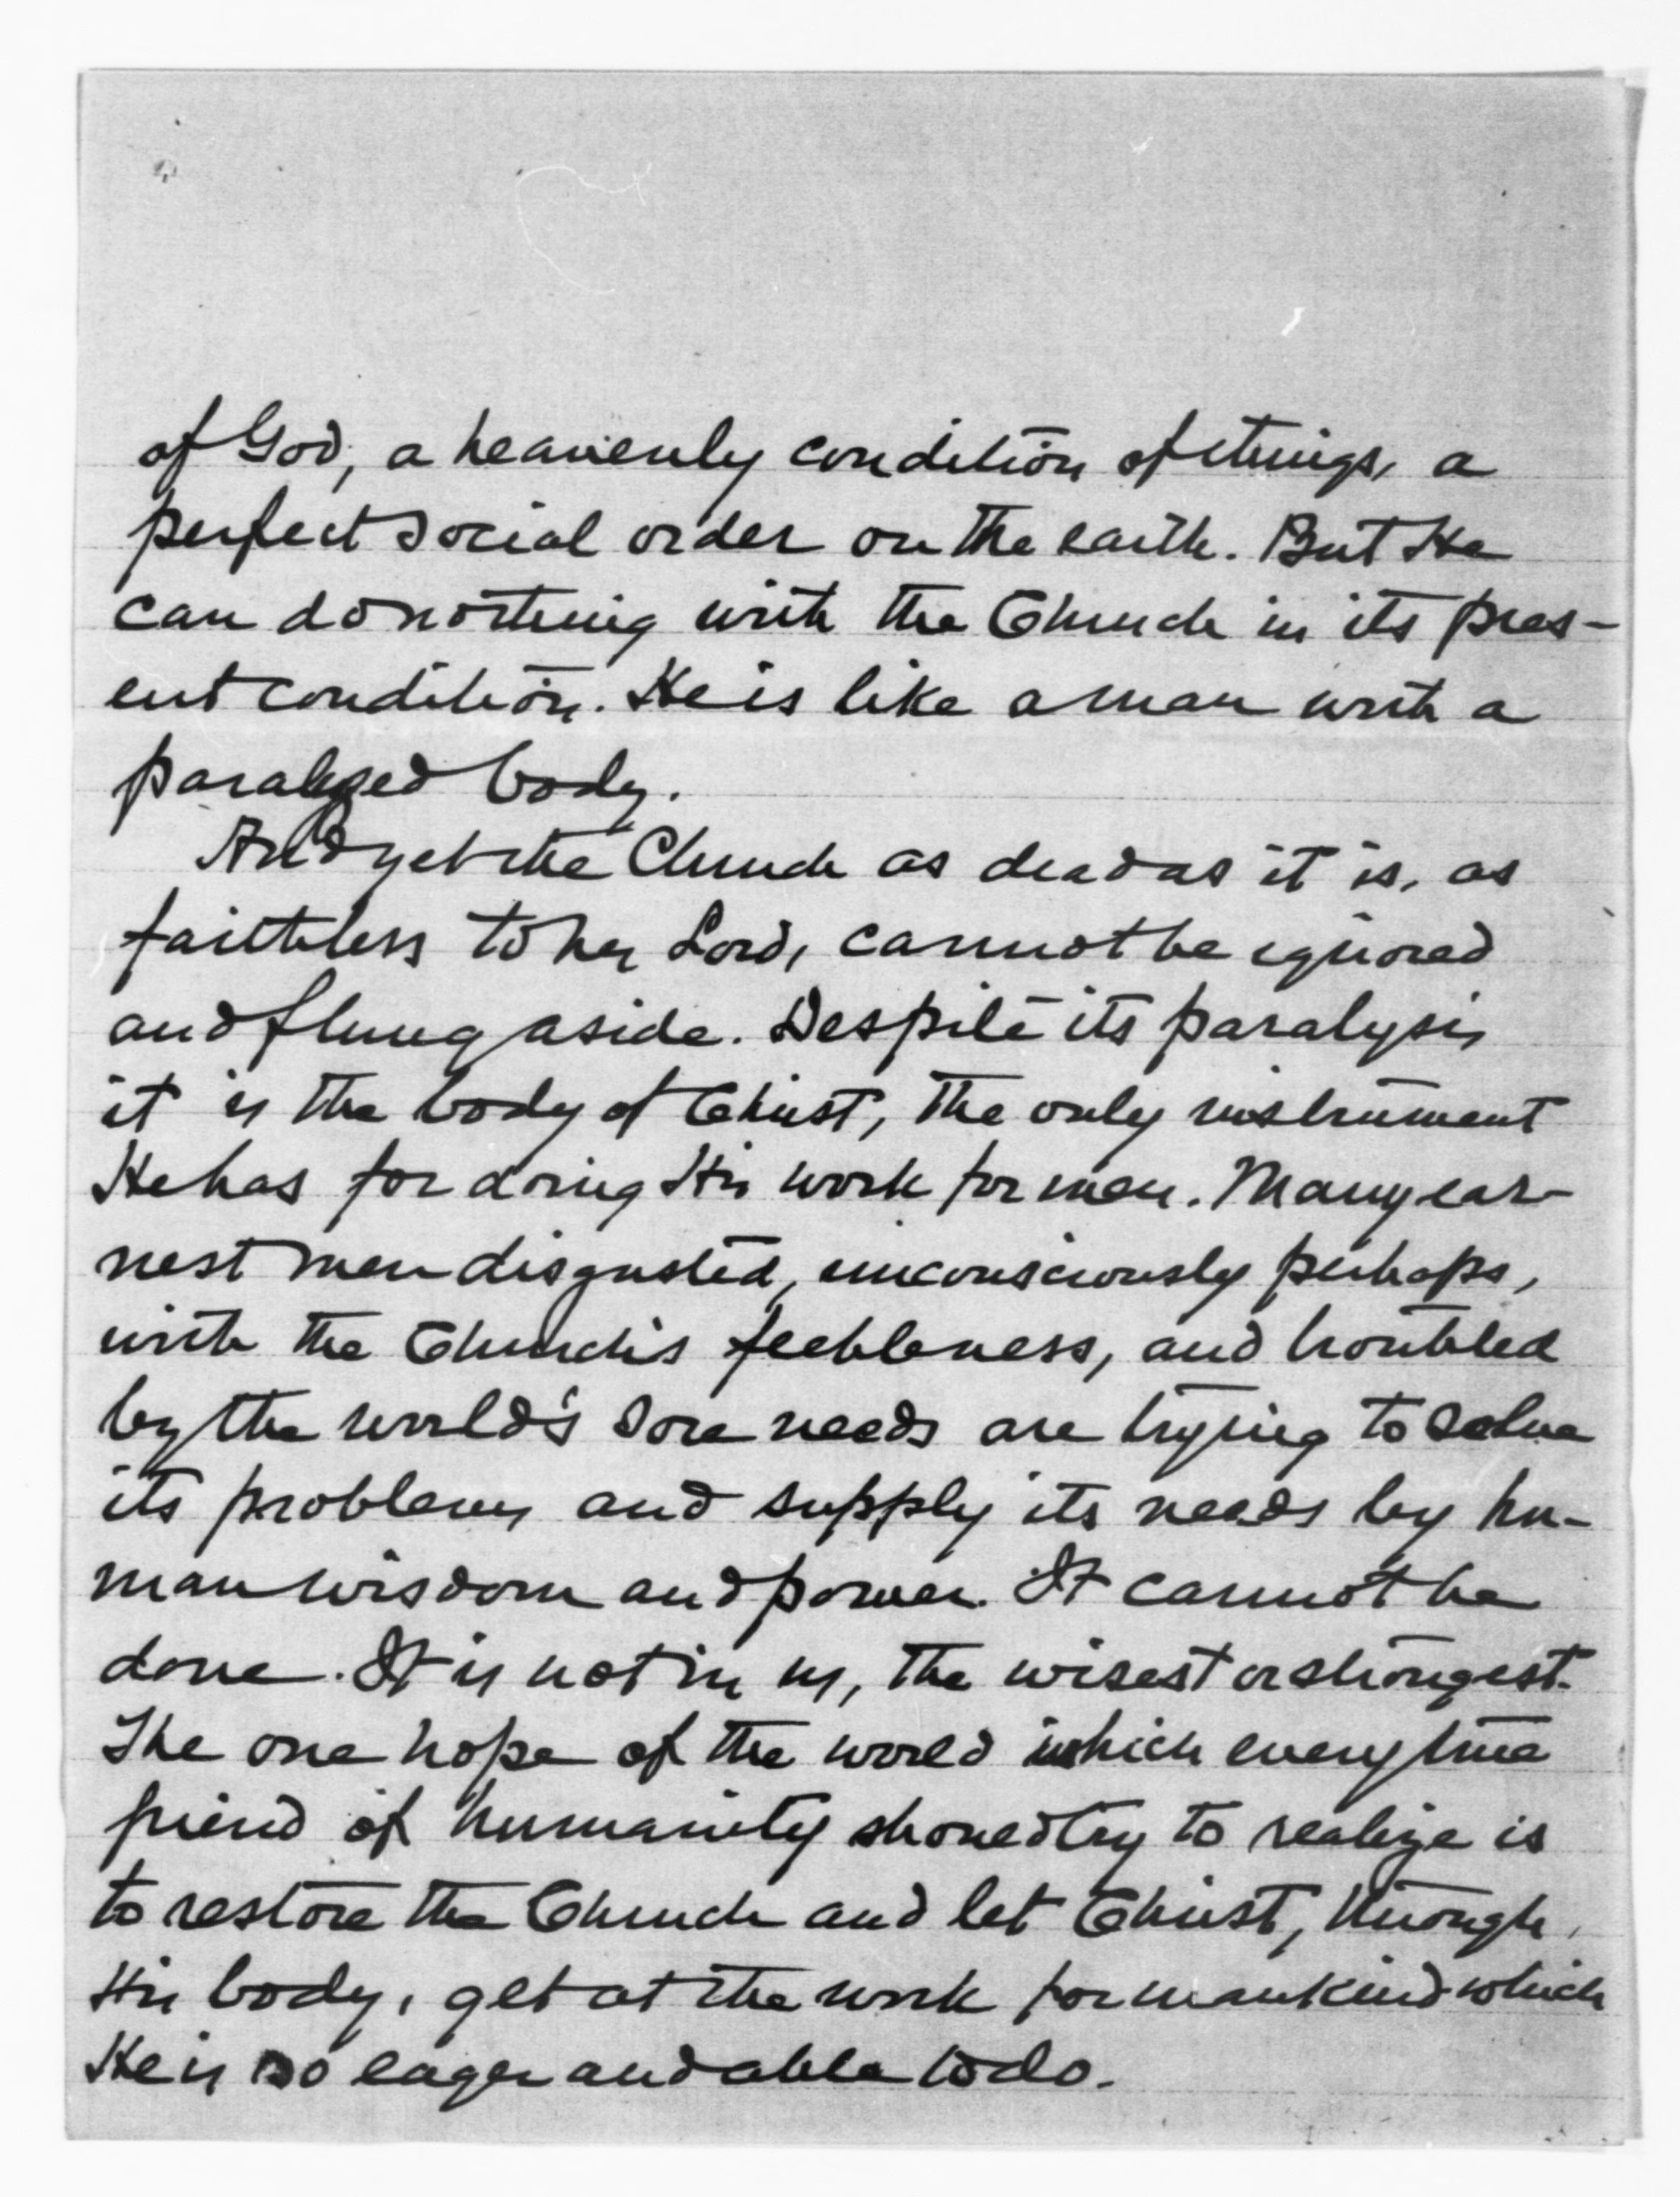 of God, a heavenly condition of things, a
perfect social order on the earth. But He
can do nothing with the Church in its pres-
ent condition. He is like a man with a
paralyzed body.
And yet the Church as dead as it is, as
faithless to her Lord, cannot be ignored
and flung aside. Despite its paralysis
it is the body of Christ, the only instrument
He has for doing His work for men. Many ear-
nest men disgusted, unconsciously perhaps,
with the Church's feebleness, and troubled
by the world's sore needs are trying to solve
its problems and supply its needs by hu-
man wisdom and power. It cannot be
done. It is not in us, the wisest or strongest.
The one hope of the world which every true
friend of humanity should try to realize is
to restore the Church and let Christ, through
His body, get at the work for mankind which
He is so eager and able to do.